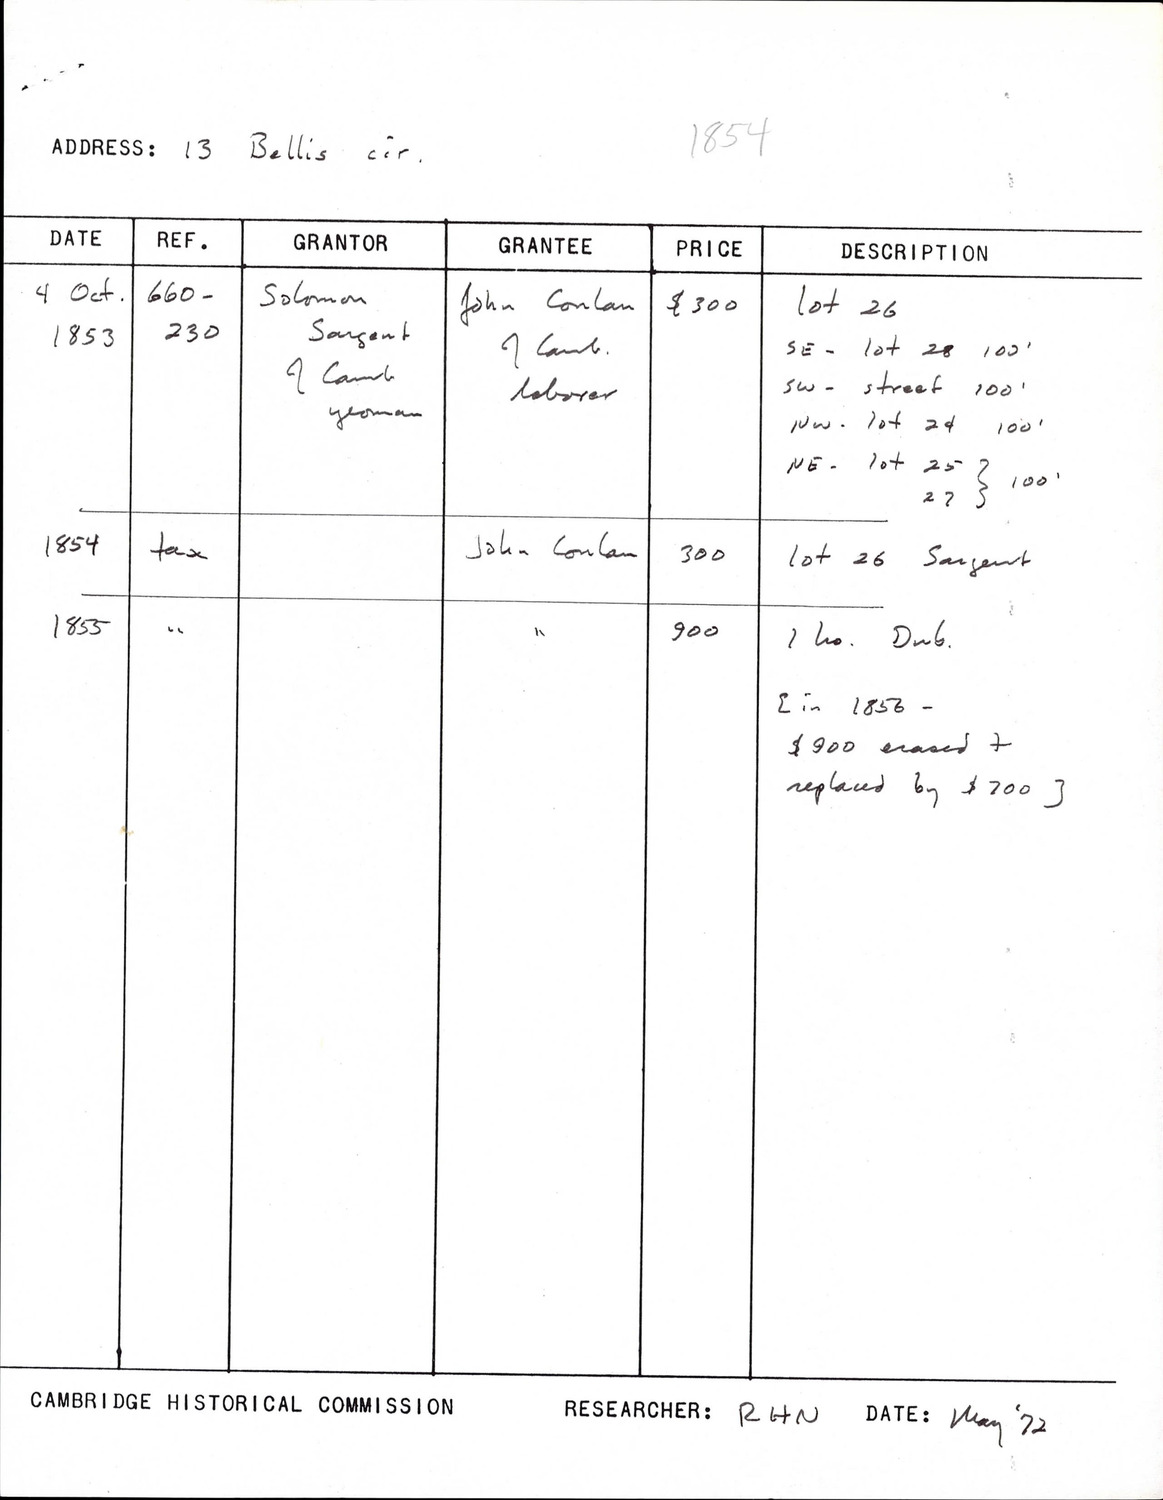 ADDRESS: 13 Bellis cir. 1854
DATE REF. GRANTOR GRANTEE PRICE DESCRIPTION
4 Oct. 660- Solomon John Conlan $300 lot 26
1853 230 Sargent of Camb. SE - lot 28 100'
of Camb laborer SW - street 100'
yeoman NW - lot 24 100'
NE - lot 25 } 100'
27
1854 tax John Conlan 300 lot 26 Sargent
1855 " " 900 1 ho. Dub.
[in 1856 -
$900 erased +
replaced by $700]
CAMBRIDGE HISTORICAL COMMISSION RESEARCHER: RHN DATE: May '72